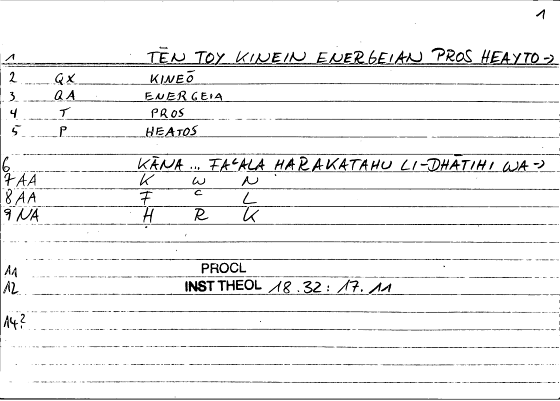 1
1 TĒN TOY KINEIN ENERGEIAN PROS HEAYTO→
2 QX KINEŌ
3 QA ENERGEIA
4 T PROS
5 P HEATOS
6 KĀNA ... FAʿALA HARAKATAHU LI-DHĀTIHI WA→
7 AA K W N
8 AA F ʿ L
9 NA H R K
11 PROCL
12 INST THEOL 18.32: 17.11
14?